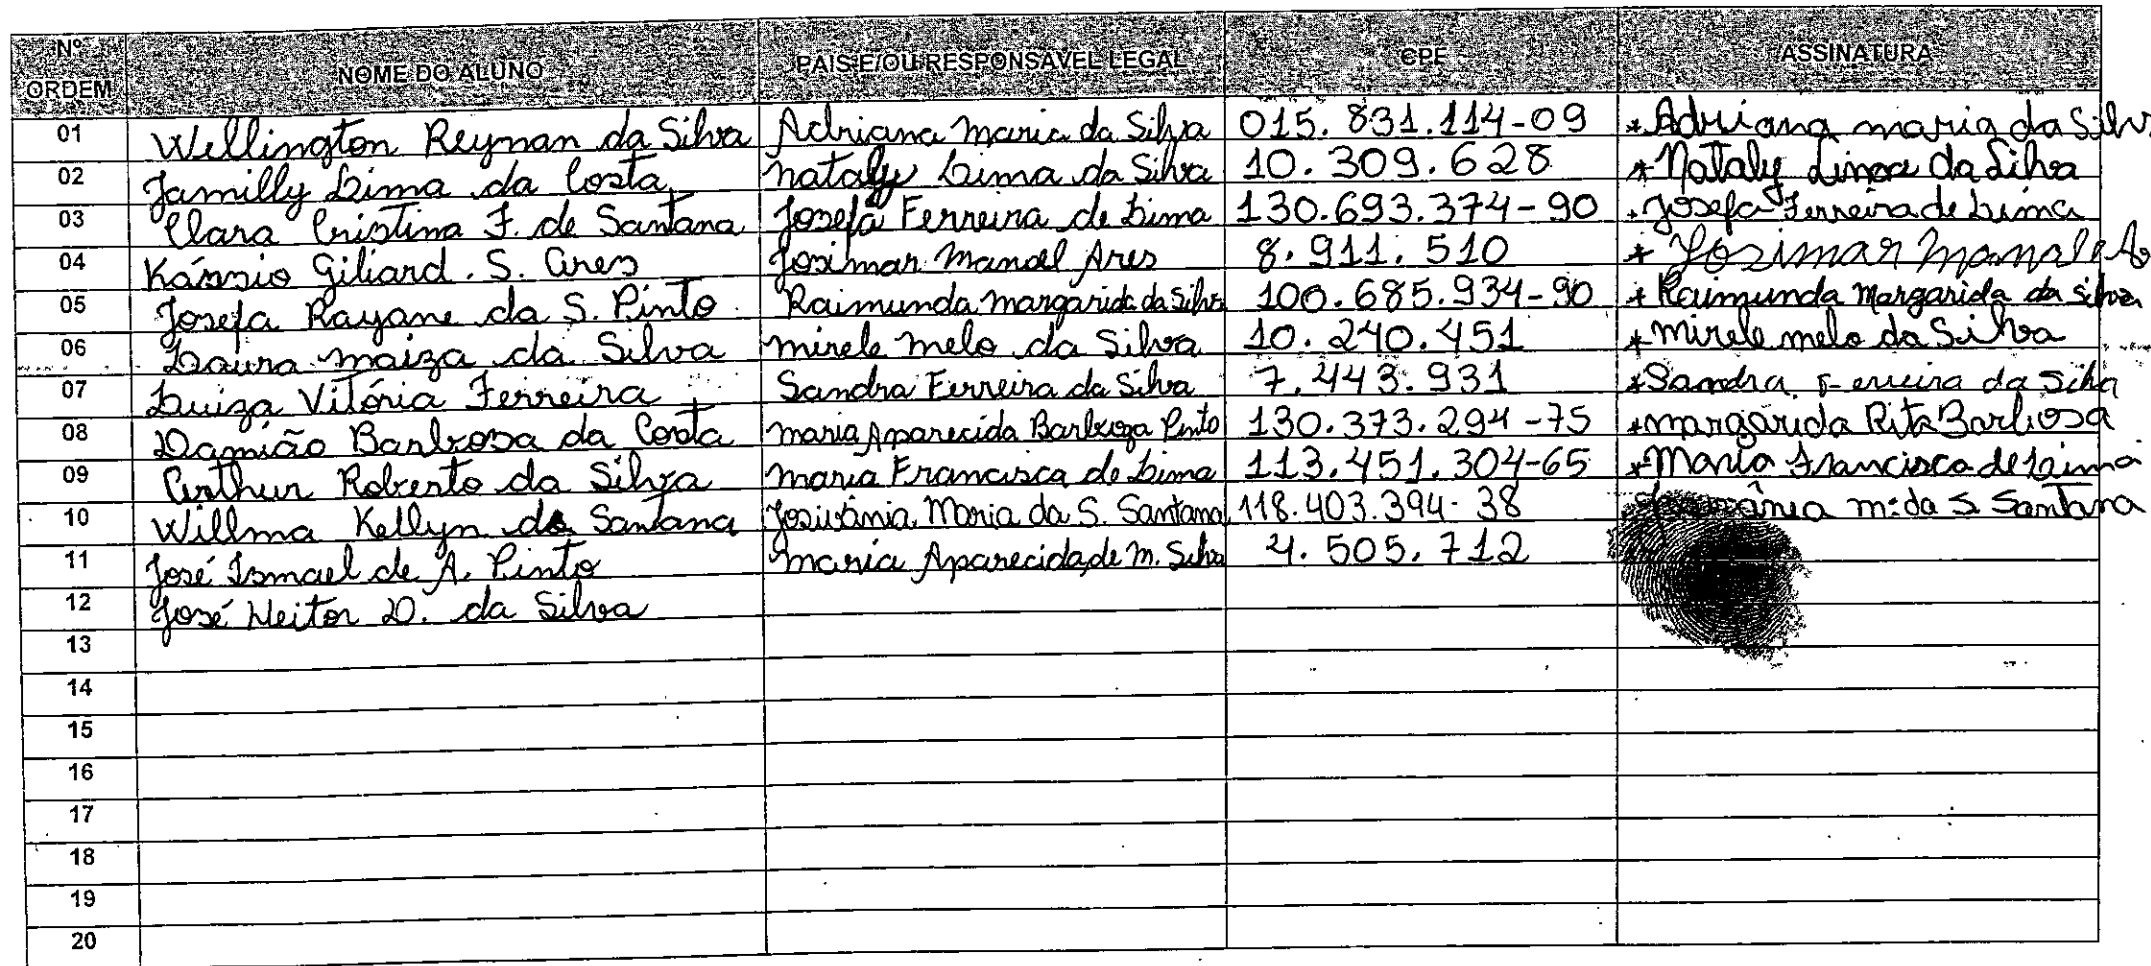 Nº ORDEM NOME DO ALUNO PAIS E/OU RESPONSÁVEL LEGAL CPF ASSINATURA
01 Wellington Reynan da Silva Adriana Maria da Silva 015.831.114-09 * Adriana maria da Silva
02 Jamilly Lima da Costa Nataly Lima da Silva 10.309.628 * Nataly Lima da Silva
03 Clara Cristina F. de Santana Josefa Ferreira de Lima 130.693.374-90 . Josefa Ferreira de Lima
04 Kássio Giliard. S. Ares Josimar Manoel Ares 8.911.510 * Josimar
05 Josefa Rayane da S. Pinto Raimunda Margarida da Silva 100.685.934-90 * Raimunda Margarida da Silva
06 Laura maiza da Silva mirele melo da Silva 10.240.451 * mirele melo da Silva
07 Luiza Vitória Ferreira Sandra Ferreira da Silva 7.443.931 * Sandra Ferreira da Silva
08 Damião Barbosa da Costa maria Aparecida Barboza Pinto 130.373.294-75 * margarida Rita Barbosa
09 Arthur Roberto da Silva maria Francisca de Lima 113.451.304-65 * Maria Francisca de Lima
10 Willma Kellyn da Santana Josivânia Maria da S. Santana 118.403.394-38 m: da S Santana
11 José Ismael de A. Pinto maria Aparecida de M. Silva 4.505.712
12 José Heitor D. da Silva
13
14
15
16
17
18
19
20